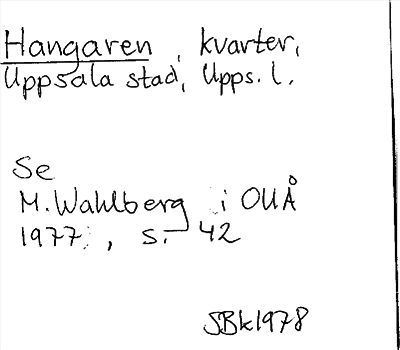 Hangaren, kvarter,
Uppsala stad, Upps. l.
Se
M. Wahlberg i OUÅ
1977, s. 42
SBk1978